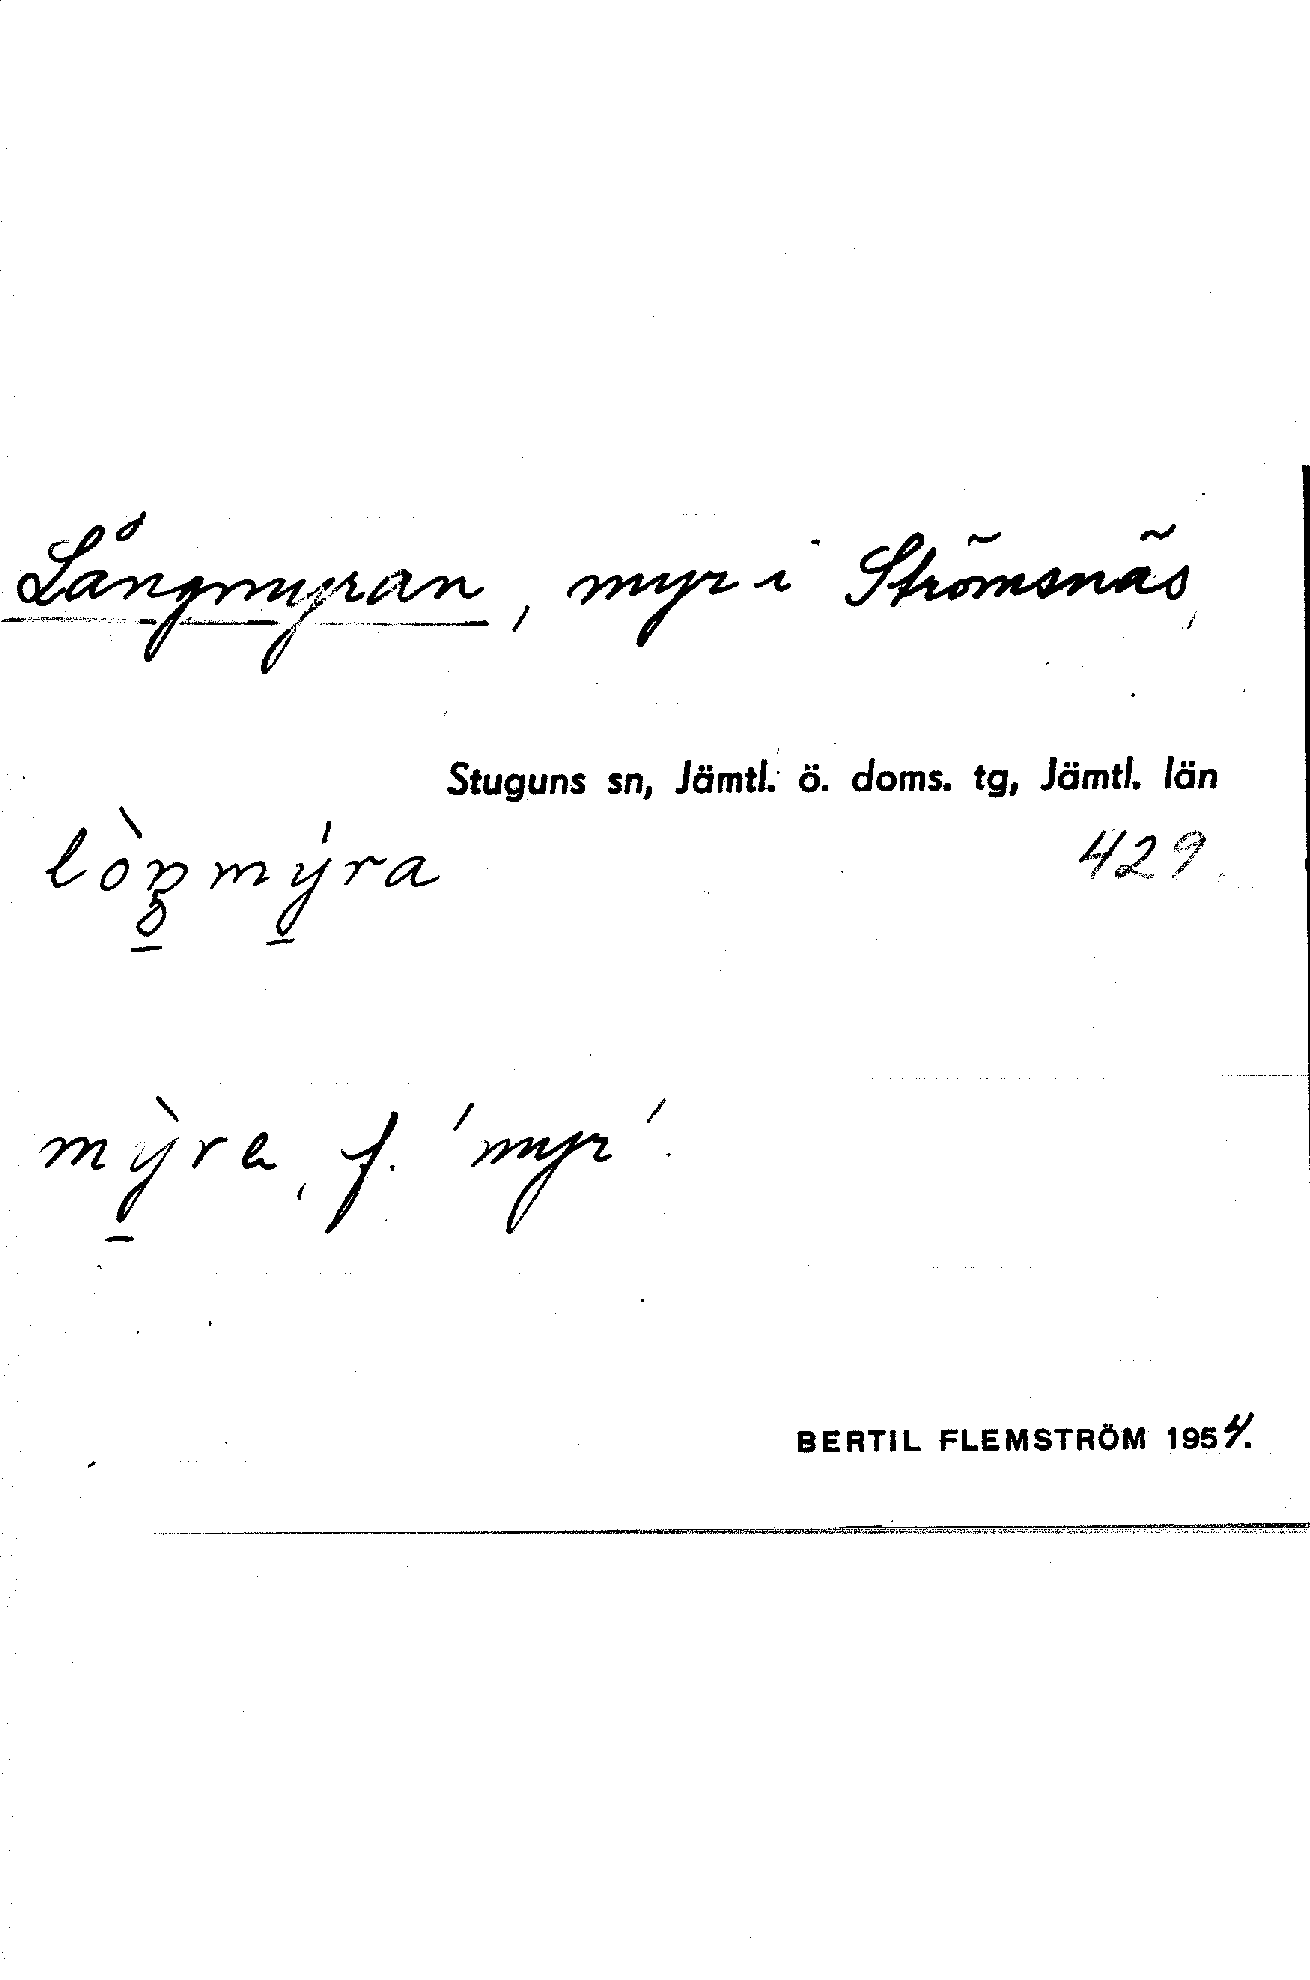 Långmyran, myr i Strömsnäs,
Stuguns sn, Jämtl. ö. doms. tg, Jämtl. län
429.
mỳ̱ra, f. 'myr'.
BERTIL FLEMSTRÖM 1954.